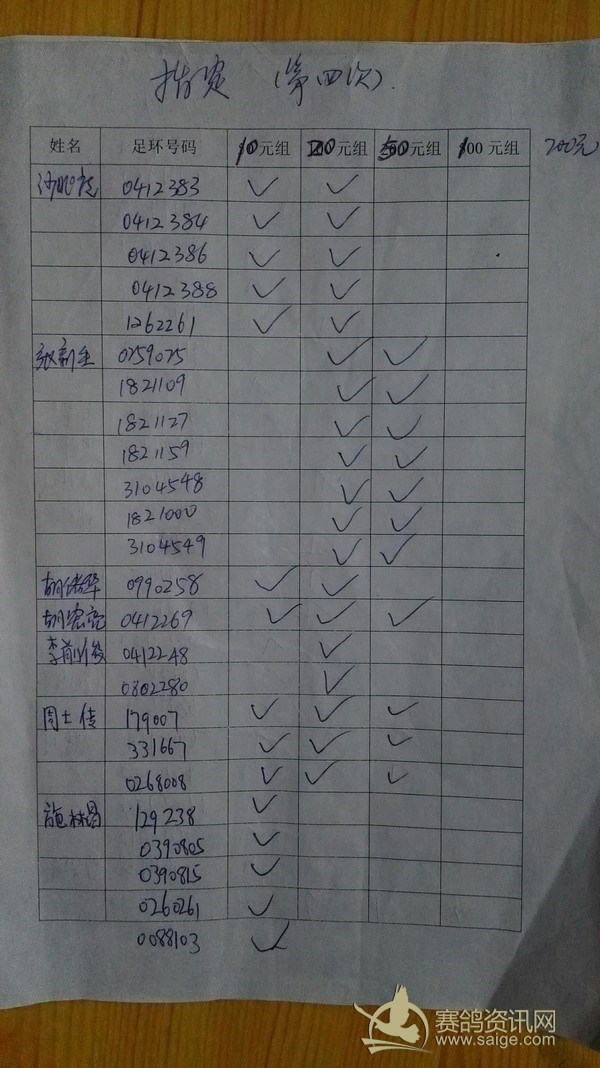 指赛 (第四次).
姓名 足环号码 10元组 200元组 500元组 100元组 200元
0412383 ✓ ✓
0412384 ✓ ✓
0412386 ✓ ✓
0412388 ✓ ✓
1262261 ✓ ✓
张新全 0259025 ✓ ✓
1821109 ✓ ✓
1821127 ✓ ✓
1821159 ✓ ✓
3104548 ✓ ✓
1821000 ✓ ✓
3104549 ✓ ✓
0990258 ✓ ✓
胡宏亮 0412269 ✓ ✓ ✓
李前 0412248 ✓
0802280 ✓
周士传 179007 ✓ ✓ ✓
331667 ✓ ✓ ✓
0268008 ✓ ✓ ✓
施林昌 129238 ✓
0390805 ✓
0390815 ✓
0260261 ✓
0088103 ✓
赛鸽资讯网
www.saige.com